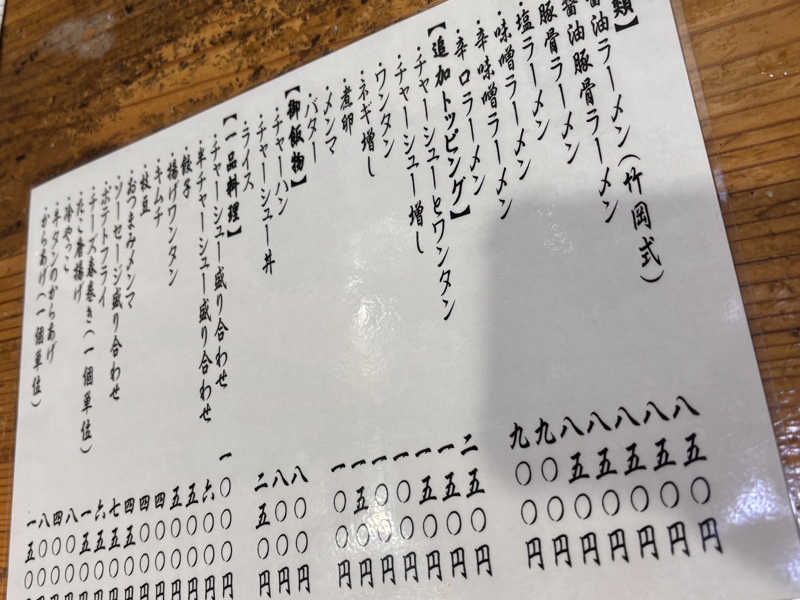 類】
醤油ラーメン(竹岡式) 八五〇円
醤油豚骨ラーメン 八五〇円
豚骨ラーメン 八五〇円
・塩ラーメン 八五〇円
・味噌ラーメン 八五〇円
・辛味噌ラーメン 九〇〇円
・辛口ラーメン 九〇〇円
【追加トッピング】
・チャーシューとワンタン 二五〇円
・チャーシュー増し 一五〇円
・ワンタン 一五〇円
・ネギ増し 一〇〇円
・煮卵 一〇〇円
・メンマ 一五〇円
・バター 一〇〇円
【御飯物】
・チャーハン 八〇〇円
・チャーシュー丼 八〇〇円
・ライス 二五〇円
【一品料理】
・チャーシュー盛り合わせ 一〇〇〇円
・半チャーシュー盛り合わせ 六〇〇円
・餃子 五〇〇円
・揚げワンタン 五〇〇円
・キムチ 四〇〇円
・枝豆 四〇〇
・おつまみメンマ 四五〇
・ソーセージ盛り合わせ 七五〇
・ポテトフライ 六五〇
・チーズ春巻き(一個単位) 一五〇
・たこ唐揚げ 八〇〇
・冷やっこ 四〇〇
・牛タンのからあげ 八〇〇
・からあげ(一個単位) 一五〇